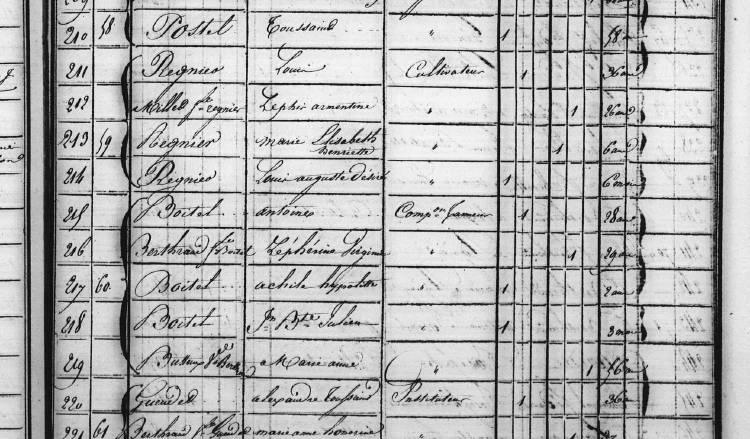 210 58 Postel Toussaint " 1 58 ans
211 Regnier Louis Cultivateur 1 36 ans
212 Millet fe regnier Zephir armentine " 1 26 ans
213 59 Regnier marie Elisabeth Henriette " 1 6 ans
214 Regnier Louis auguste désiré " 1 6 mois
215 Boitel antoine 1 28 ans
216 Berthrand fe Boitel Zephérine Virginie " 1 29 ans
217 60 Boitel achile hypolitte " 1 2 ans
218 Boitel Jn Bte Julien " 1 3 mois
219 Marie anne " 1
220 Gueudet alexandre Toussaint Instituteur 1 36
221 61 Berthrand fe Gueudet marie anne honorine " 1